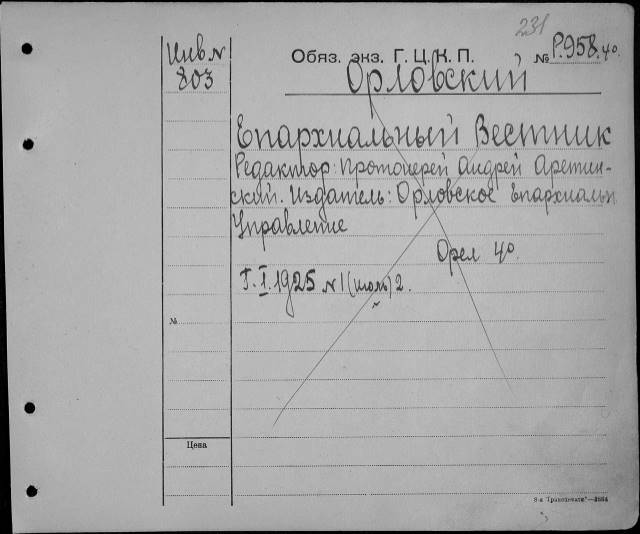 231
Инв №
803
Обяз. экз. Г. Ц. К. П. № Р.958. 4º.
Орловский
Епархиальный Вестник
Редактор: протоиерей Андрей Аретин-
ский. Издатель: Орловское Епархиальн
Управление
Орел 4º.
Г. I. 1925 №1 (июль) 2.
№
Цена
8-я "Транспечати"—2564